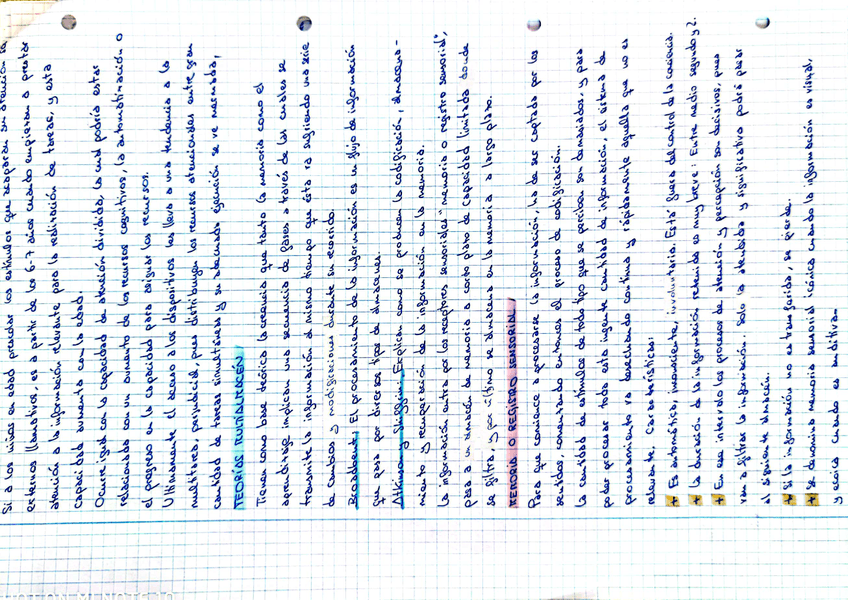 Si a los niños en edad preescolar los estímulos que acaparan su atención son
externos llamativos, es a partir de los 6-7 años cuando empiezan a prestar
atención a la información relevante para la realización de tareas, y esta
capacidad aumenta con la edad.
Ocurre igual con la capacidad de atención dividida, la cual podría estar
relacionada con un aumento de los recursos cognitivos, la automatización o
el progreso en la capacidad para asignar los recursos.
Ultimamente el acceso a los dispositivos les lleva a una tendencia a la
multitarea, perjudicial, pues distribuyen los recursos atencionales entre gran
cantidad de tareas simultáneas y su adecuada ejecución se ve mermada,
TEORÍAS MULTIALMACÉN,
Tienen como base teórica la creencia que tanto la memoria como el
aprendizaje implican una secuencia de pasos a través de los cuales se
transmite la información al mismo tiempo que ésta va sufriendo una serie
de cambios y modificaciones durante su recorrido.
Broadbent, El procesamiento de la información es un flujo de información
que pasa por diversos tipos de almacenes.
Atkinson y Shiffrin, Explican como se producen la codificación, almacena-
miento y recuperación de la información en la memoria.
La información entra por los receptores sensoriales "memoria o registro sensorial",
pasa a un almacén de memoria a corto plazo de capacidad limitada donde
se filtra, y por último se almacena en la memoria a largo plazo.
MEMORIA O REGISTRO SENSORIAL,
Para que comience a procesarse la información, ha de ser captada por los
sentidos, comenzando entonces el proceso de codificación.
La cantidad de estímulos de todo tipo que se perciben son demasiados, y para
poder procesar toda esta ingente cantidad de información, el sistema de
procesamiento va desechando continua y rápidamente aquella que no es
relevante. Características:
+ Es automático, inconsciente, involuntaria. Está fuera del control de la conciencia.
+ La duración de la información retenida es muy breve: Entre medio segundo y 2.
+ En ese intervalo los procesos de atención y percepción son decisivos, pues
van a filtrar la información. Solo la atendida y significativa podrá pasar
al siguiente almacén.
+ Si la información no es transferida, se pierde.
+ Se denomina memoria sensorial icónica cuando la información es visual,
y ecoica cuando es auditiva.